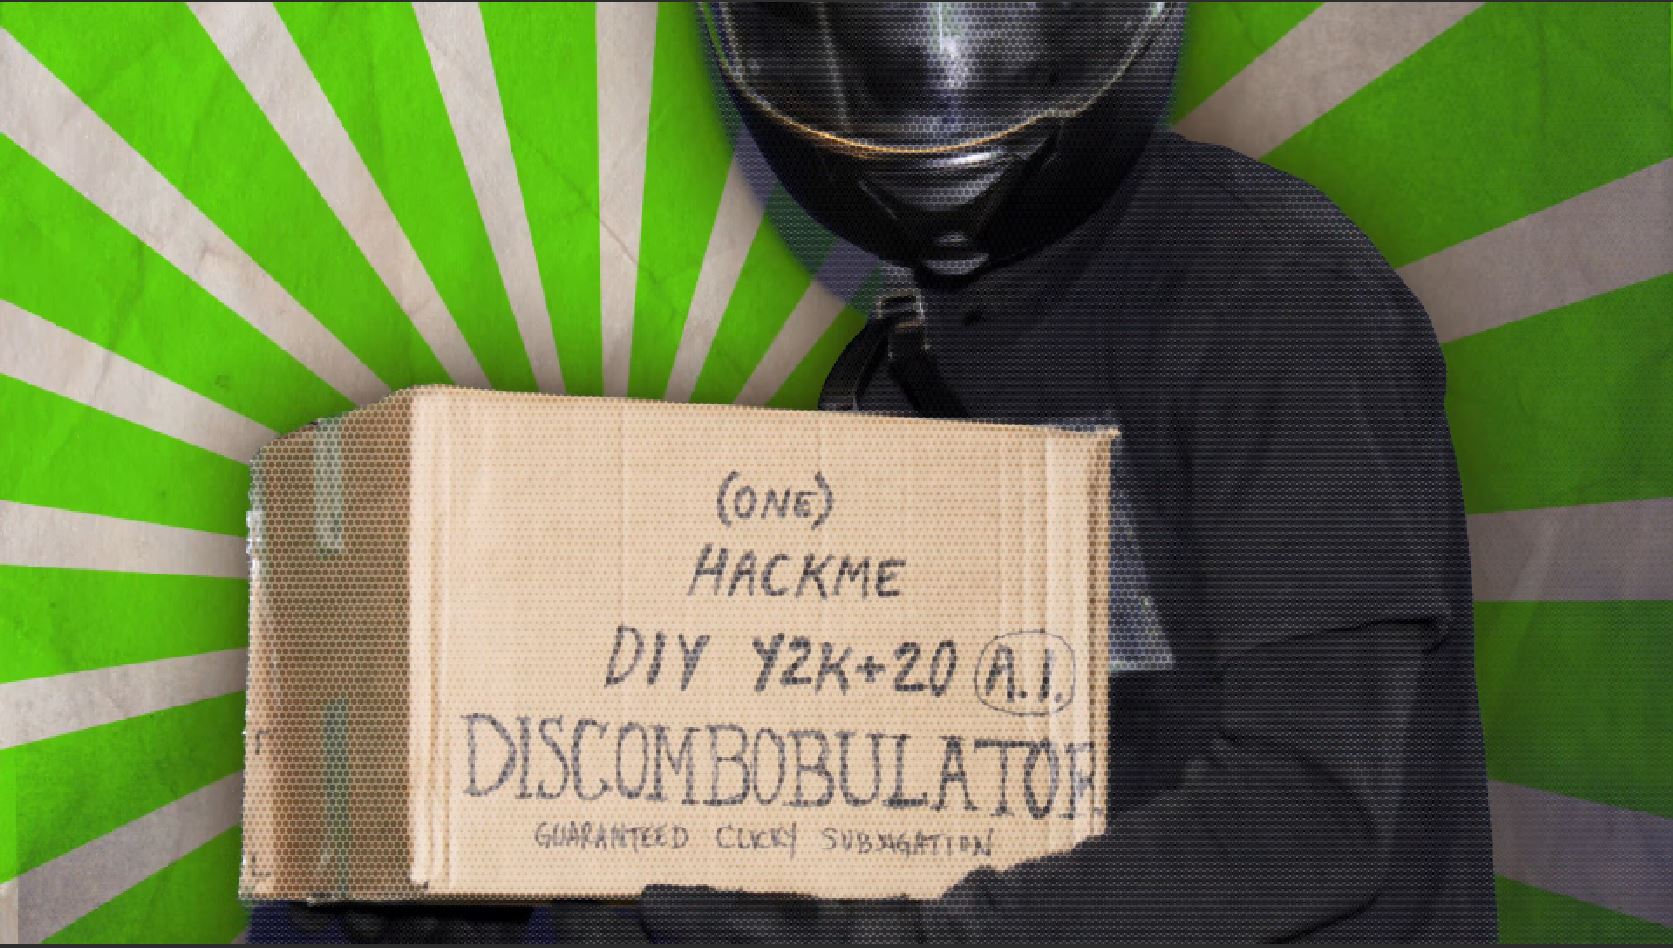 (ONE)
HACKME
DIY Y2K+20 A.I.
DISCOMBOBULATOR
GUARANTEED CLICKY SUBJUGATION